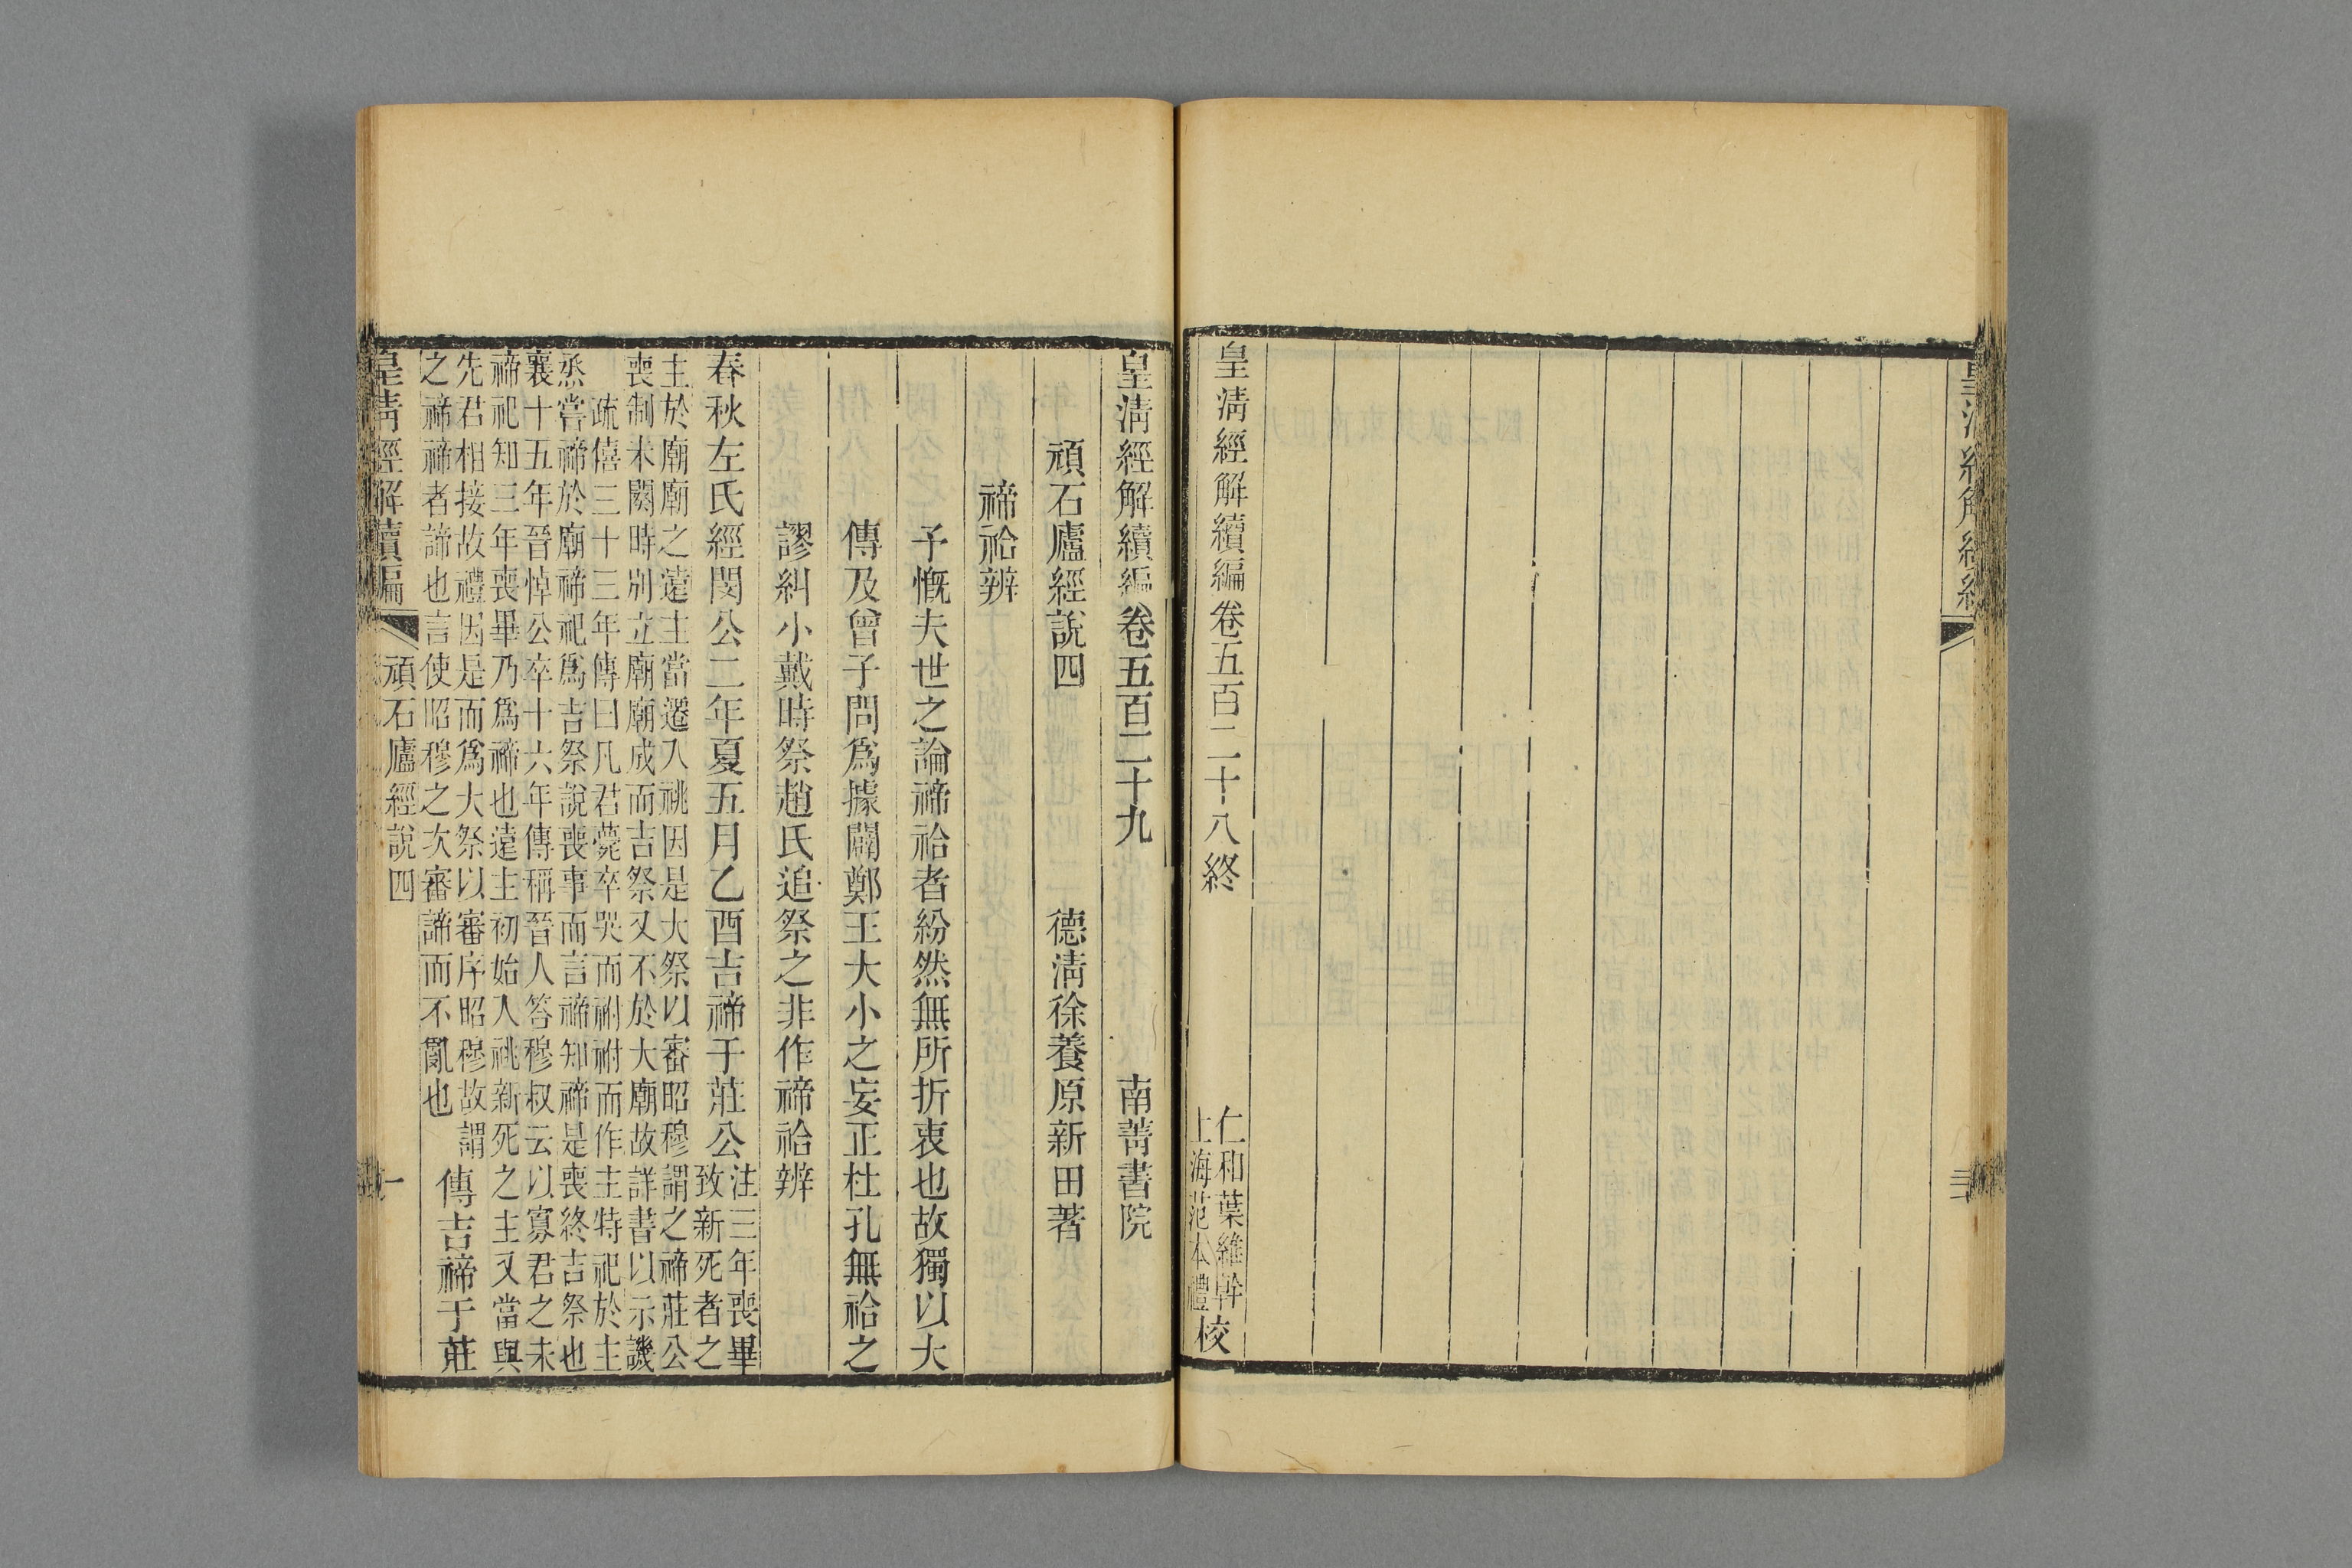 皇清經解續編卷五百二十八終
仁和葉維幹
上海范本禮校
皇清經解續編卷五百二十九 南菁書院
頑石廬經說四 德清徐養原新田著
禘祫辨
予慨夫世之論禘祫者紛然無所折衷也故獨以大
傳及曾子問爲據闢鄭王大小之妄正杜孔無祫之
謬糾小戴時祭趙氏追祭之非作禘祫辨
春秋左氏經閔公二年夏五月乙酉吉禘于莊公
注三年喪畢
致新死者之
主於廟廟之遠主當遷入祧因是大祭以審昭穆謂之禘莊公
喪制未闋時別立廟廟成而吉祭又不於大廟故詳書以示譏
疏僖三十三年傳曰凡君薨卒哭而祔祔而作主特祀於主
烝嘗禘於廟禘祀爲吉祭說喪事而言禘知禘是喪終吉祭也
襄十五年晉悼公卒十六年傳稱晉人答穆叔云以寡君之未
禘祀知三年喪畢乃爲禘也遠主初始入祧新死之主又當與
先君相接故禮因是而爲大祭以審序昭穆故謂
之禘禘者諦也言使昭穆之次審諦而不亂也
傳吉禘于莊
皇清經解續編 頑石廬經說四 一